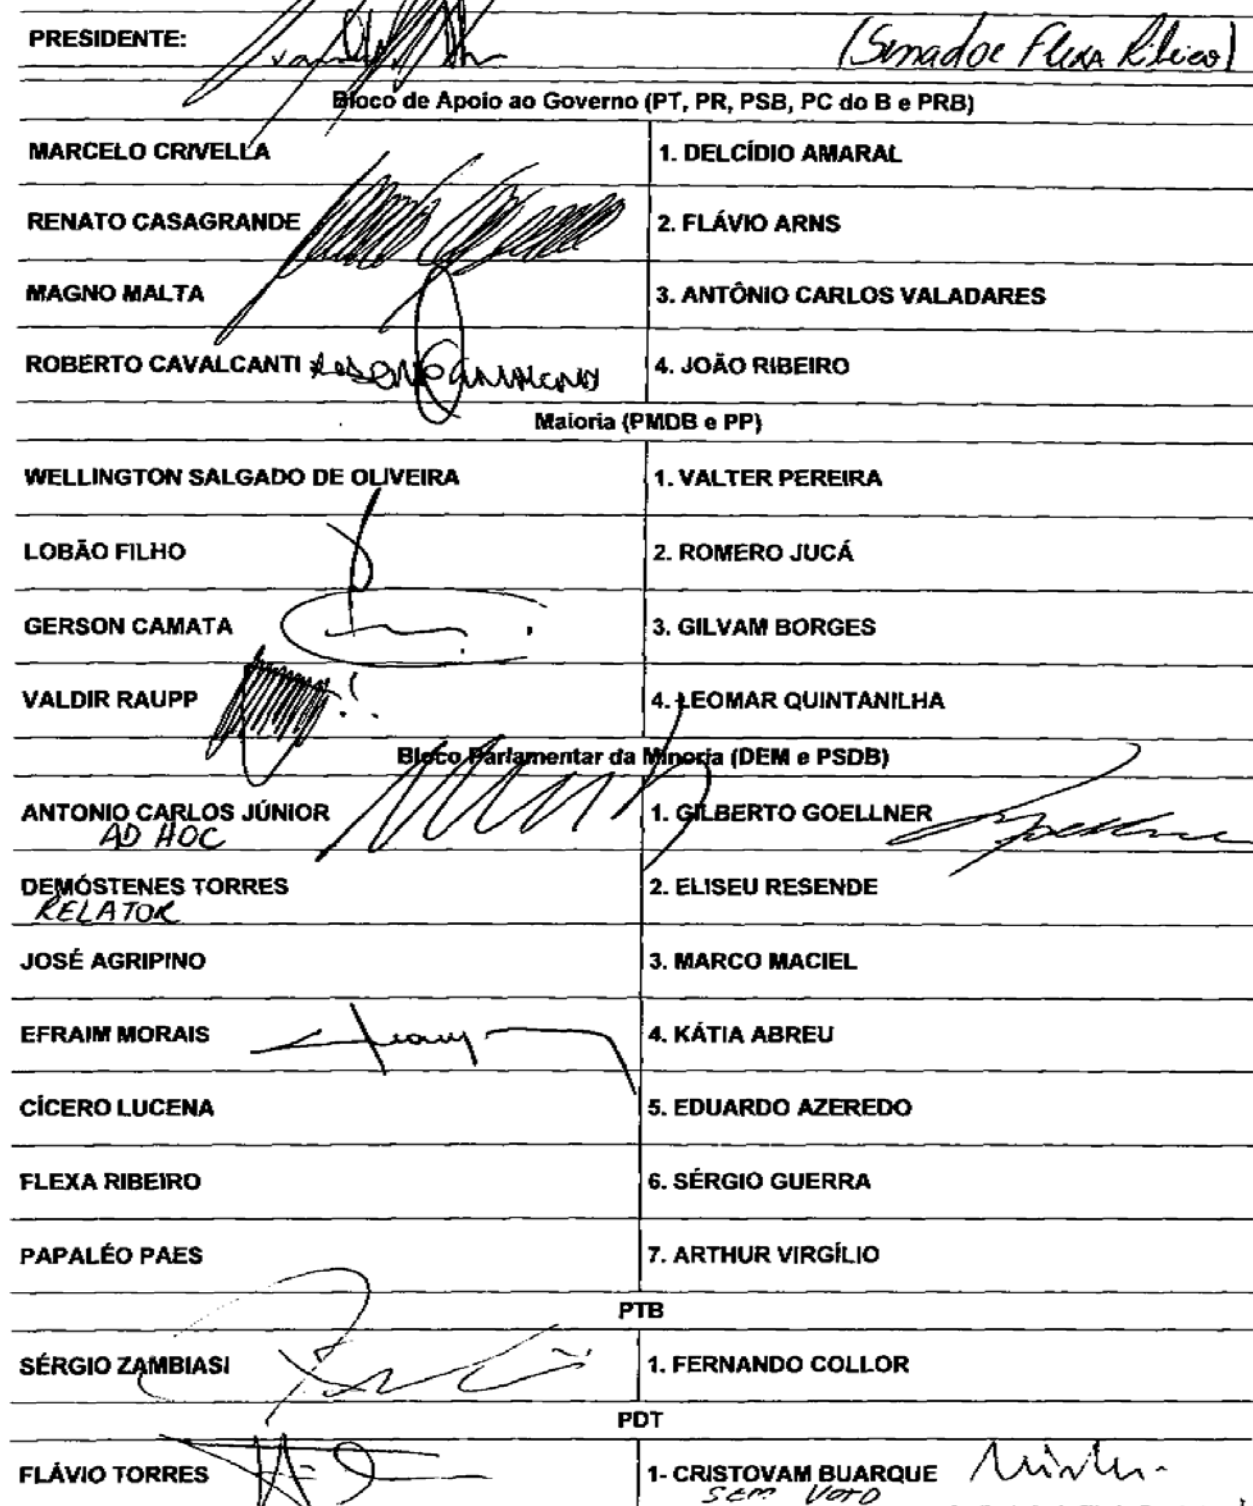 PRESIDENTE: (Senador Flexa Ribeiro)
Bloco de Apoio ao Governo (PT, PR, PSB, PC do B e PRB)
MARCELO CRIVELLA 1. DELCÍDIO AMARAL
RENATO CASAGRANDE 2. FLÁVIO ARNS
MAGNO MALTA 3. ANTÔNIO CARLOS VALADARES
ROBERTO CAVALCANTI 4. JOÃO RIBEIRO
Maioria (PMDB e PP)
WELLINGTON SALGADO DE OLIVEIRA 1. VALTER PEREIRA
LOBÃO FILHO 2. ROMERO JUCÁ
GERSON CAMATA 3. GILVAM BORGES
VALDIR RAUPP 4. LEOMAR QUINTANILHA
Bloco Parlamentar da Minoria (DEM e PSDB)
ANTONIO CARLOS JÚNIOR 1. GILBERTO GOELLNER
AD HOC
DEMÓSTENES TORRES 2. ELISEU RESENDE
RELATOR
JOSÉ AGRIPINO 3. MARCO MACIEL
EFRAIM MORAIS 4. KÁTIA ABREU
CÍCERO LUCENA 5. EDUARDO AZEREDO
FLEXA RIBEIRO 6. SÉRGIO GUERRA
PAPALÉO PAES 7. ARTHUR VIRGÍLIO
PTB
SÉRGIO ZAMBIASI 1. FERNANDO COLLOR
PDT
FLÁVIO TORRES 1- CRISTOVAM BUARQUE
SEM VOTO